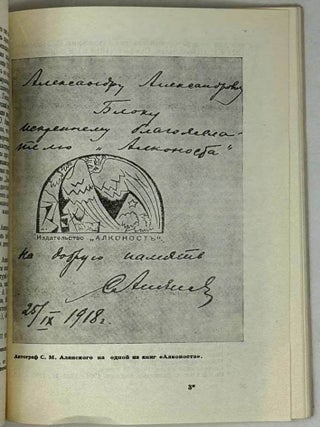 Александру Александровичу
Блоку
искреннему благожела-
телю „Алконоста"
Издательство „АЛКОНОСТЪ"
на добрую память
С Алянский
25/IX 1918 г.
Автограф С. М. Алянского на одной из книг «Алконоста».
3*